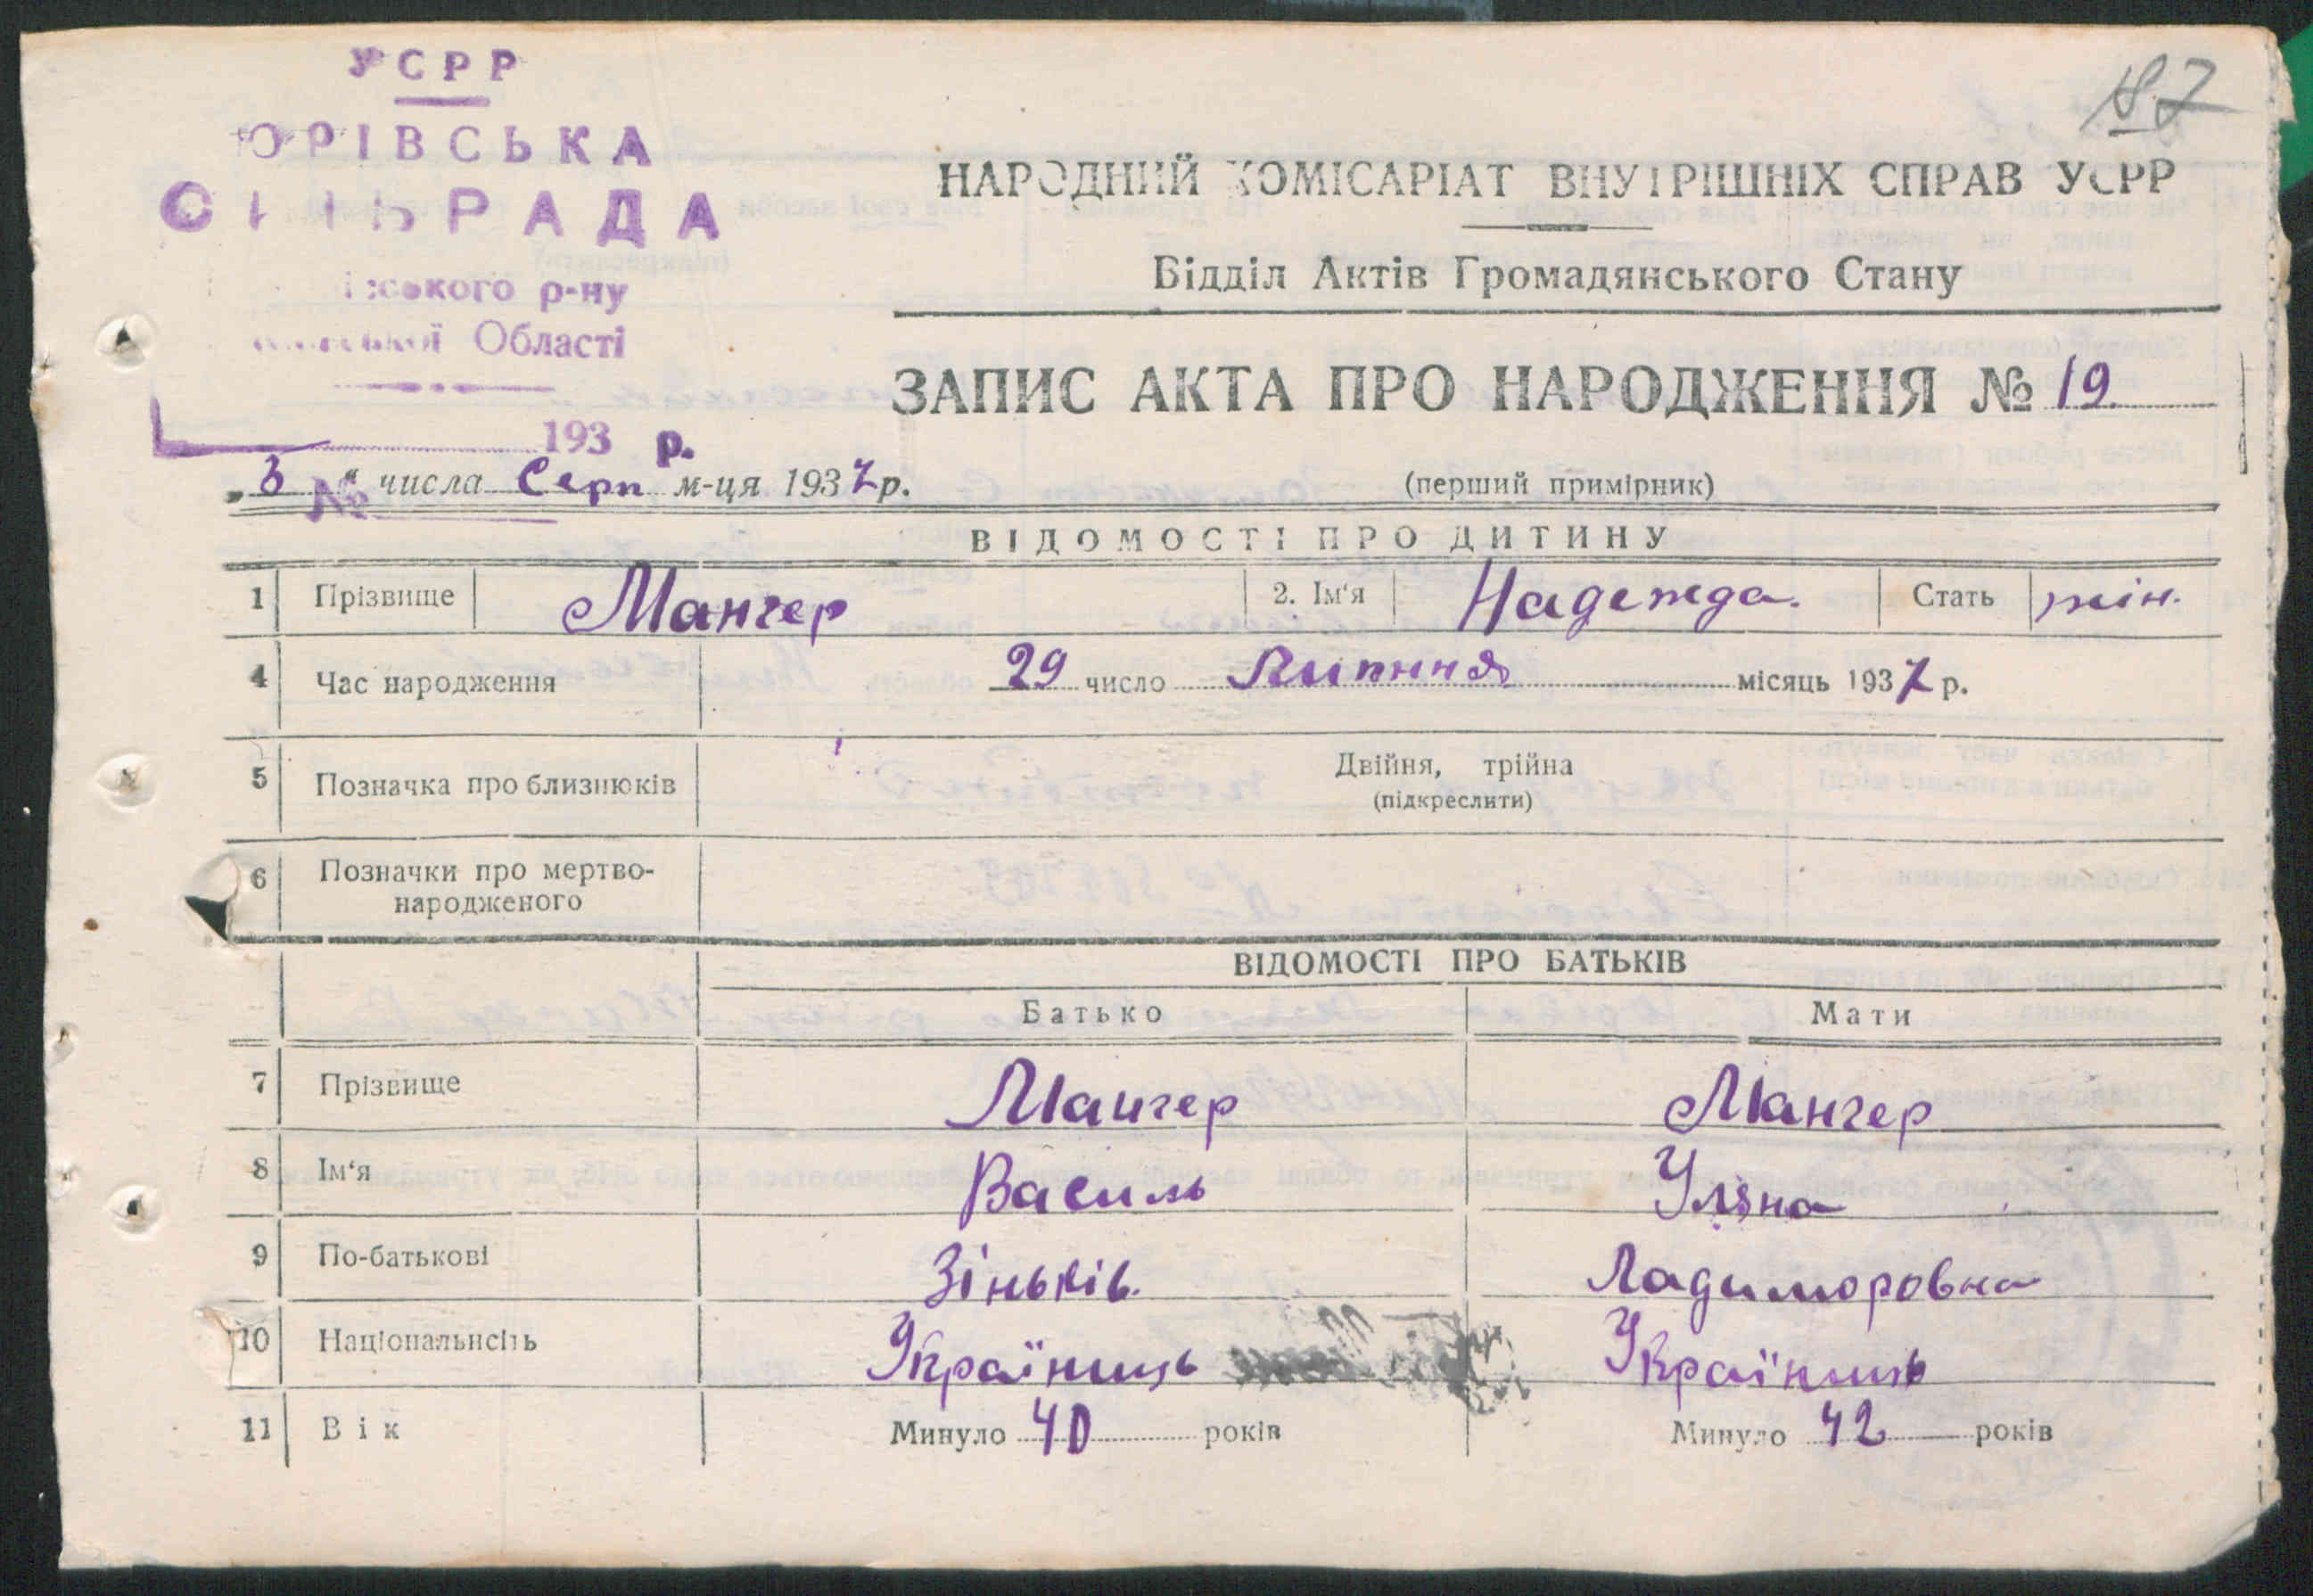 УСРР
ЮРІВСЬКА
СІЛЬРАДА
р-ну
Області
193 р.
№
187
НАРОДНИЙ КОМІСАРІАТ ВНУТРІШНІХ СПРАВ УСРР
Відділ Актів Громадянського Стану
ЗАПИС АКТА ПРО НАРОДЖЕННЯ № 19.
„3“ числа Серп м-ця 1937 р.
(перший примірник)
ВІДОМОСТІ ПРО ДИТИНУ
1 Прізвище Мангер 2. Ім'я Надежда. Стать жін.
4 Час народження 29 число Липння місяць 1937 р.
5 Позначка про близнюків Двійня, трійна
(підкреслити)
6 Позначки про мертво-
народженого
ВІДОМОСТІ ПРО БАТЬКІВ
Батько Мати
7 Прізвище Мангер Мангер
8 Ім'я Василь Уляна
9 По-батькові Зіньків. Ладиморовна
10 Національність Українць Українць
11 Вік Минуло 40 років Минуло 42 років